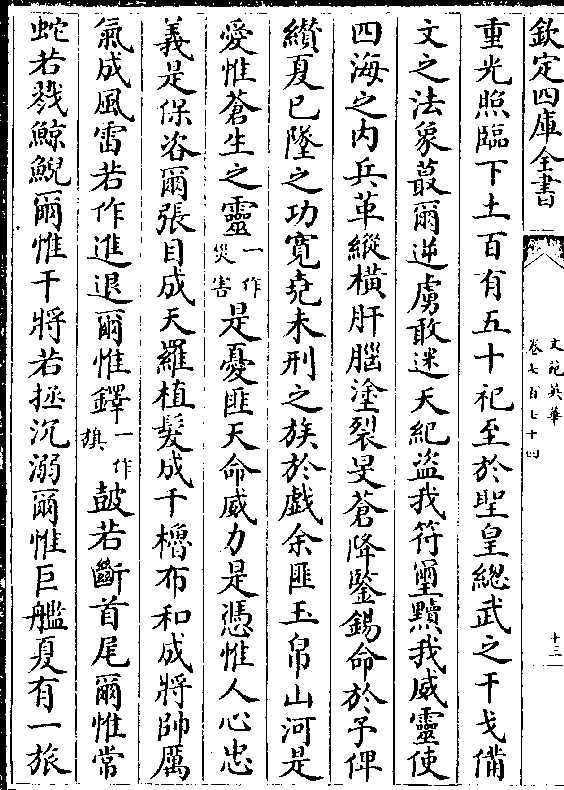 欽定四庫全書
文苑英華
卷七百七十四
十三
重光照臨下土百有五十祀至於聖皇總武之干戈備
文之法象蕞爾逆虜敢迷天紀盜我符璽黷我威靈使
四海之内兵革縱横肝腦塗裂旻蒼降鍳錫命於予俾
纉夏已墜之功寛堯未刑之族於戲余匪玉帛山河是
愛惟蒼生之靈一作災害是憂匪天命威力是憑惟人心忠
義是保咨爾張目成天羅植髮成干櫓布和成將帥厲
氣成風雷若作進退爾惟鐸一作旗皷若斷首尾爾惟常
蛇若戮鯨鯢爾惟干將若拯沉溺爾惟巨艦夏有一旅